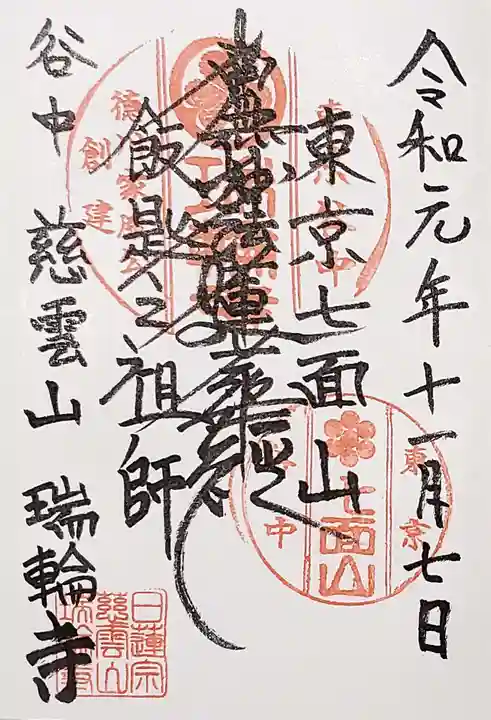 令和元年十一月七日
東京七面山
南無妙法蓮華経
飯匙之祖師
谷中 慈雲山 瑞輪寺
東京
七面山
谷中
創建
日蓮宗
慈雲山
瑞輪寺